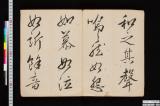 和之其聲
嗚〻然如怨
如慕如泣
如訴餘音